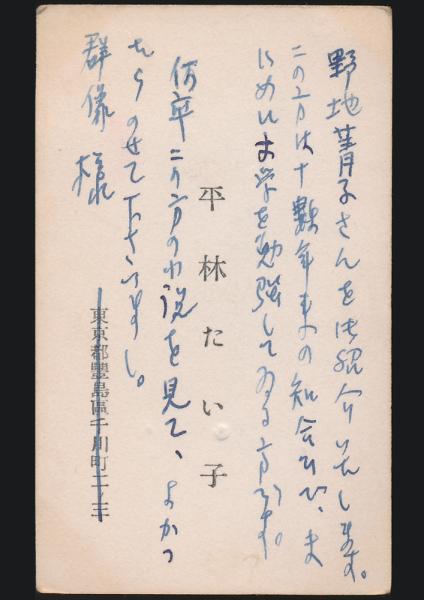 野地菁子さんを御紹介いたします。
この方は十数年来の知合ひで、ま
じめに文学を勉強してゐる方です。
平林たい子
何卒この方の小説を見て、よかつ
たらのせて下さいまし。
群像様
東京都豊島區千川町二ノ三